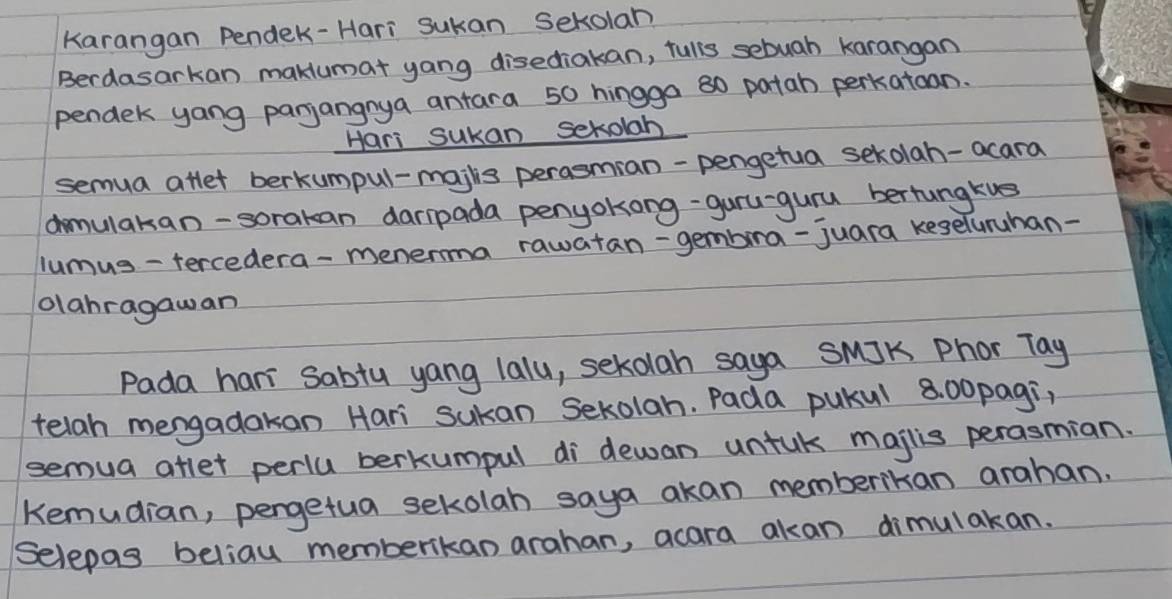 Karangan Pendek - Hari Sukan Sekolah
Berdasarkan maklumat yang disediakan, tulis sebuah karangan
pendek yang panjangnya antara 50 hingga 80 patah perkataan.
Hari Sukan Sekolah
semua atlet berkumpul - majlis perasmian - pengetua sekolah - acara
dimulakan - sorakan daripada penyokong - guru-guru bertungkus
lumus - tercedera - menerima rawatan - gembira - juara keseluruhan -
olahragawan
Pada hari Sabtu yang lalu, sekolah saya SMJK Phor Tay
telah mengadakan Hari Sukan Sekolah. Pada pukul 8.00pagi,
semua atlet perlu berkumpul di dewan untuk majlis perasmian.
Kemudian, pengetua sekolah saya akan memberikan arahan.
Selepas beliau memberikan arahan, acara akan dimulakan.